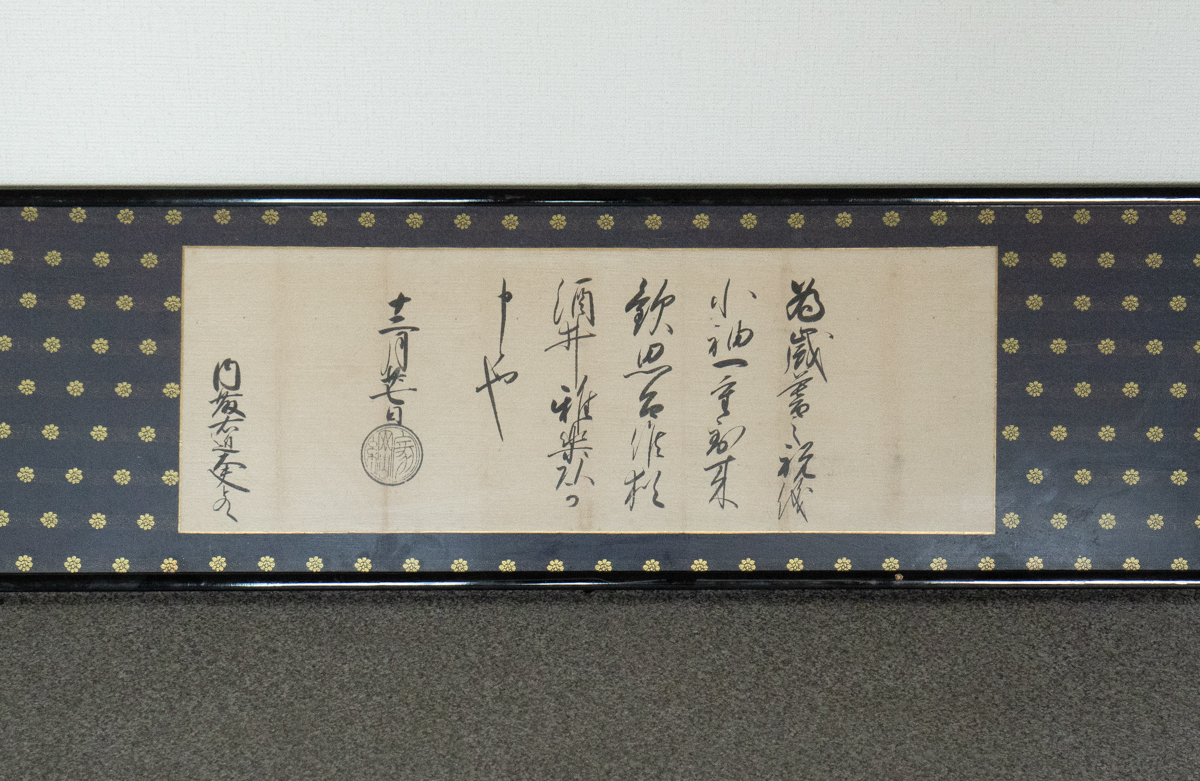 為歳暮之祝儀
小袖一重到来
歓思召候猶
酒井雅楽頭可
申也
十二月廿七日
内藤右近大夫とのへ